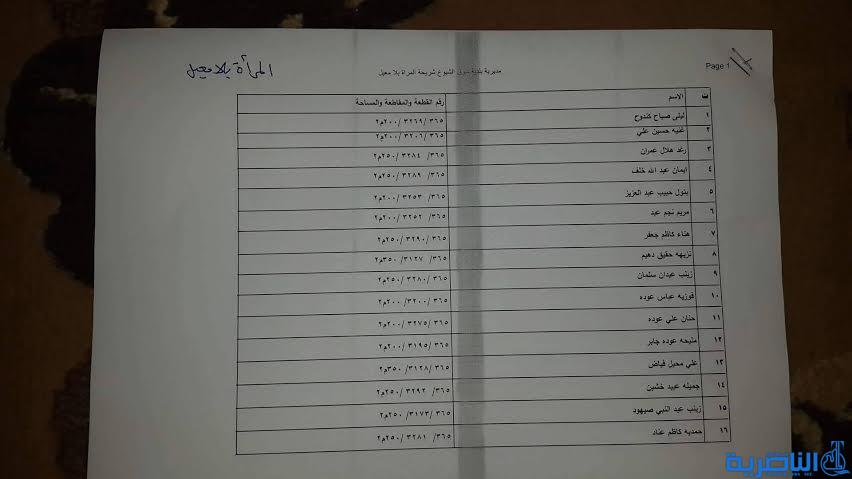 Page 1
مديرية بلدية سوق الشيوخ شريحة المرأة بلا معيل
المرأة بلا معيل
ت الاسم رقم القطعة والمقاطعة والمساحة
١ ليلى صباح كندوح ٣٦٥/ ٣٢٦٩ /٢٠٠م٢
٢ غنيه حسين علي ٣٦٥/ ٣٢٠٦ /٢٠٠م٢
٣ رغد هلال عمران ٣٦٥/ ٣٢٨٤ /٢٥٠م٢
٤ ايمان عبد الله خلف ٣٦٥/ ٣٢٨٩ /٢٥٠م٢
٥ بتول حبيب عبد العزيز ٣٦٥/ ٣٢٥٣ /٢٠٠م٢
٦ مريم نجم عبد ٣٦٥/ ٣٢٥٢ /٢٠٠م٢
٧ هناء كاظم جعفر ٣٦٥/ ٣٢٩٠ /٢٥٠م٢
٨ نزيهه حقيق دهيم ٣٦٥/ ٣١٢٧ /٣٥٠م٢
٩ زينب عبدان سلمان ٣٦٥/ ٣٢٨٠ /٢٥٠م٢
١٠ فوزيه عباس عوده ٣٦٥/ ٣٢٠٠ /٢٠٠م٢
١١ حنان علي عوده ٣٦٥/ ٣٢٧٥ /٢٠٠م٢
١٢ مليحه عوده جابر ٣٦٥/ ٣١٩٥ /٢٠٠م٢
١٣ علي محيل فياض ٣٦٥/ ٣١٢٨ /٣٥٠م٢
١٤ جميله عبيد خشين ٣٦٥/ ٣٢٩٢ /٢٥٠م٢
١٥ زينب عبد النبي صيهود ٣٦٥/ ٣١٧٣ /٢٥٠م٢
١٦ حمديه كاظم عناد ٣٦٥/ ٣٢٨١ /٢٥٠م٢
الناصرية